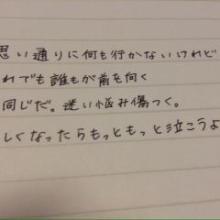 思い通りに何も行かないけれど
れでも誰もが前を向く
同じだ。迷い悩み傷つく。
しくなったらもっともっと泣こうよ